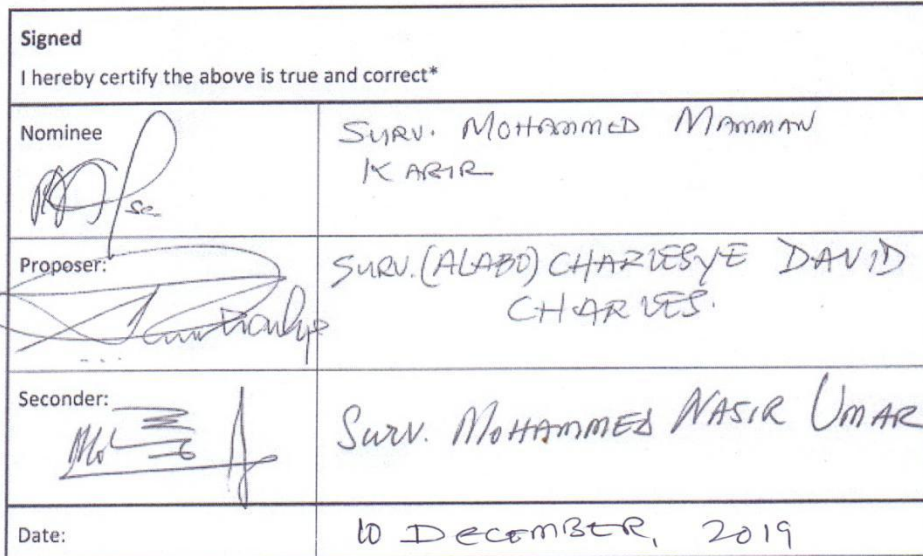 Signed
I hereby certify the above is true and correct*
Nominee
SURV. MOHAMMED MAMMAN
KABIR
Proposer:
SURV. (ALABO) CHARLESYE DAVID
CHARLES.
Seconder:
SURV. MOHAMMED NASIR UMAR
Date:
10 DECEMBER, 2019